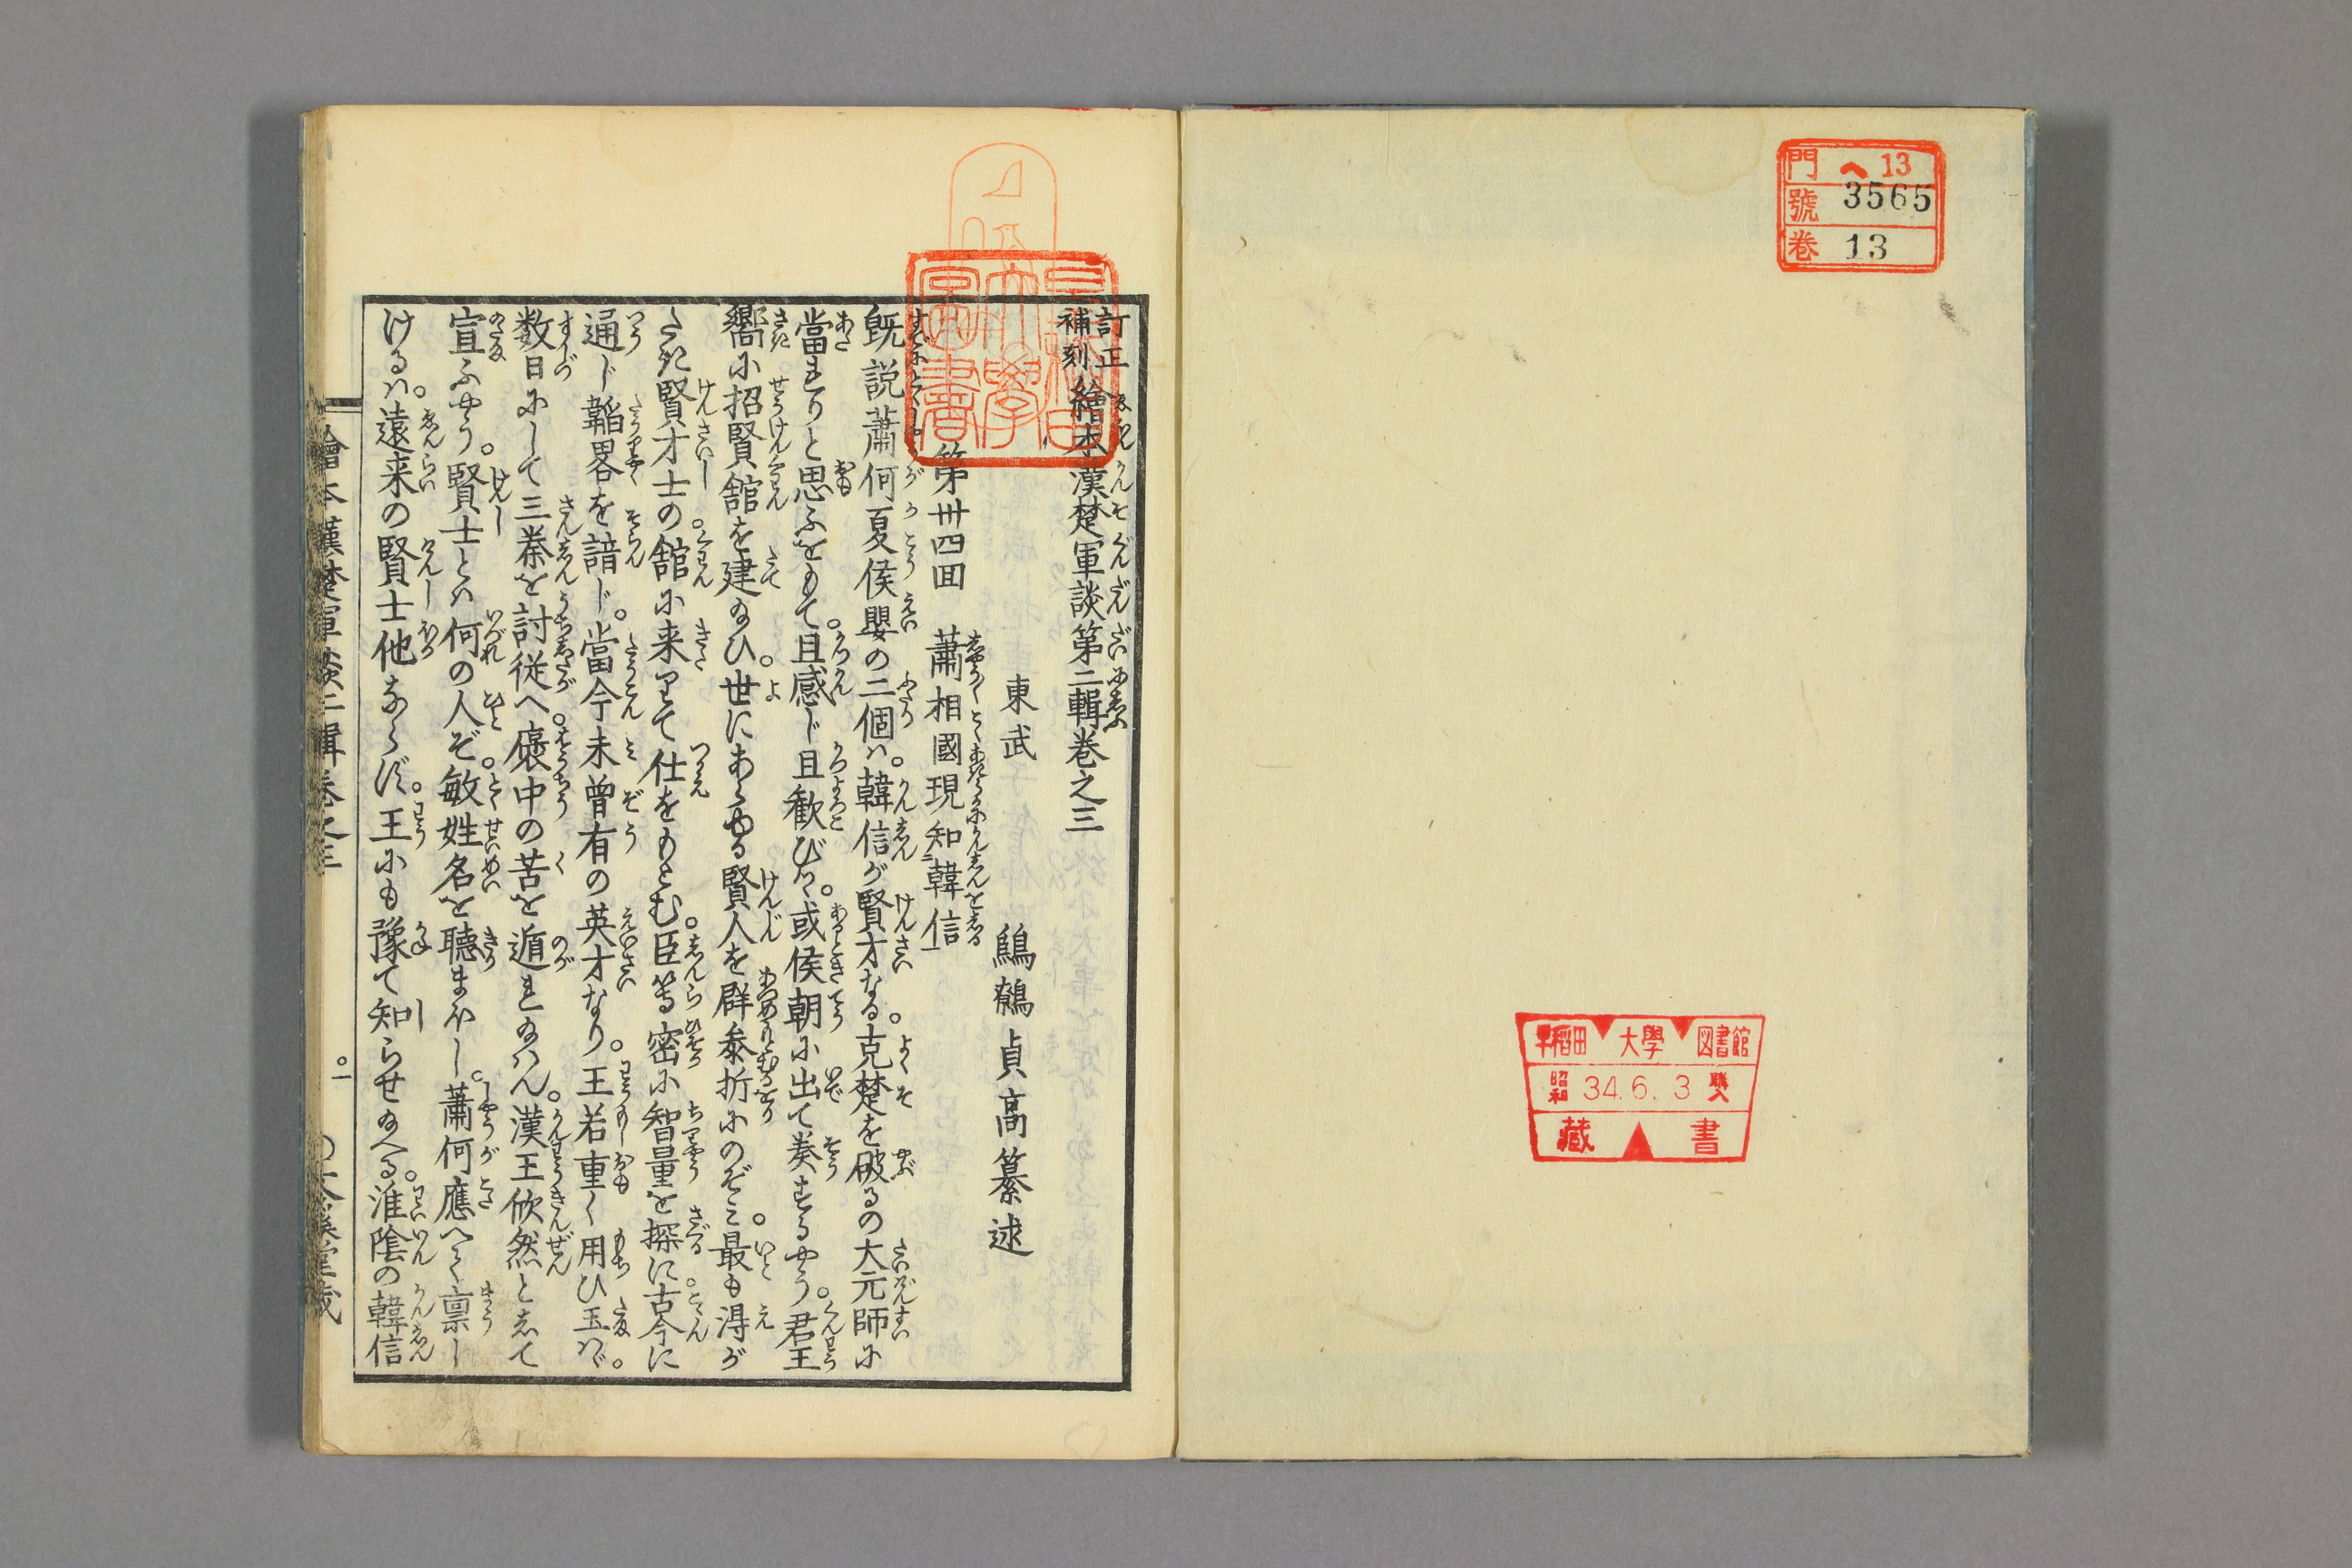 門 ヘ 13
號 3565
巻 13
早稲田大學図書館
昭和 34.6.3
藏書
訂正補刻 繪本漢楚軍談第二輯巻之三
東武 鶴貞高纂述
第卅四囬 蕭相國現知二韓信一
既説蕭何夏侯嬰の二個ハ。韓信が賢才なる。克楚を破るの大元師に
當れりと思ふをもて。且感じ且歓びバ。或侯朝に出て奏するやう。君王
嚮に招賢舘を建給ひ。世にあらゆる賢人を群参折にのぞミ。最も得が
たき賢才士の舘に来りて仕をもとむ。臣等密に智量を探に。古今に
通じ韜畧を諳じ。當今未曽有の英才なり。王若重く用ひ玉ハヾ。
数日にして三秦を討従へ。褒中の苦を遁れ給ハん。漢王欣然として
宣ふやう。賢士とハ何の人ぞ。敏姓名を聴まほし。蕭何應へて禀し
けるハ。遠来の賢士他ならず。王にも豫て知らせ給へる。淮陰の韓信
繪本漢楚軍談二輯巻之三 。一